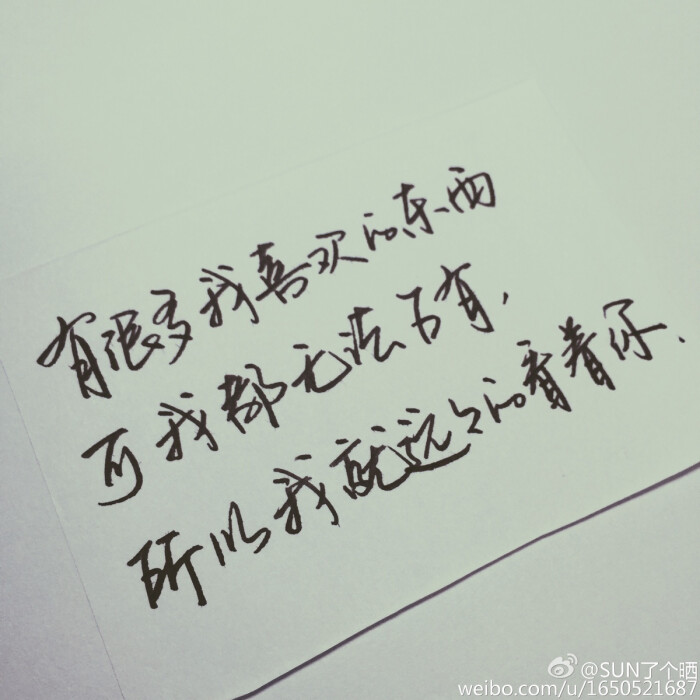 有很多我喜欢的东西
可我都无法占有，
所以我就远远的看着你.
@SUN了个晒
weibo.com/u/1650521687